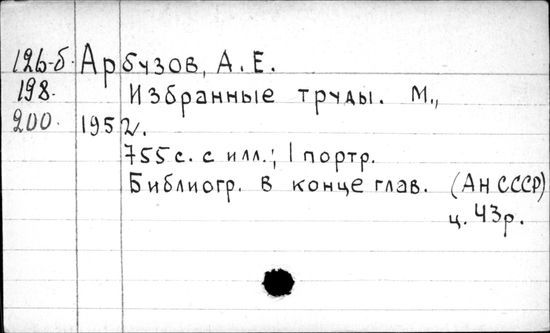 126-б. Арбузов, А.Е.
198. Избранные труды. М.,
200. 1952.
755 с. с илл.; 1 портр.
Библиогр. в конце глав. (АН СССР)
ц. 43р.